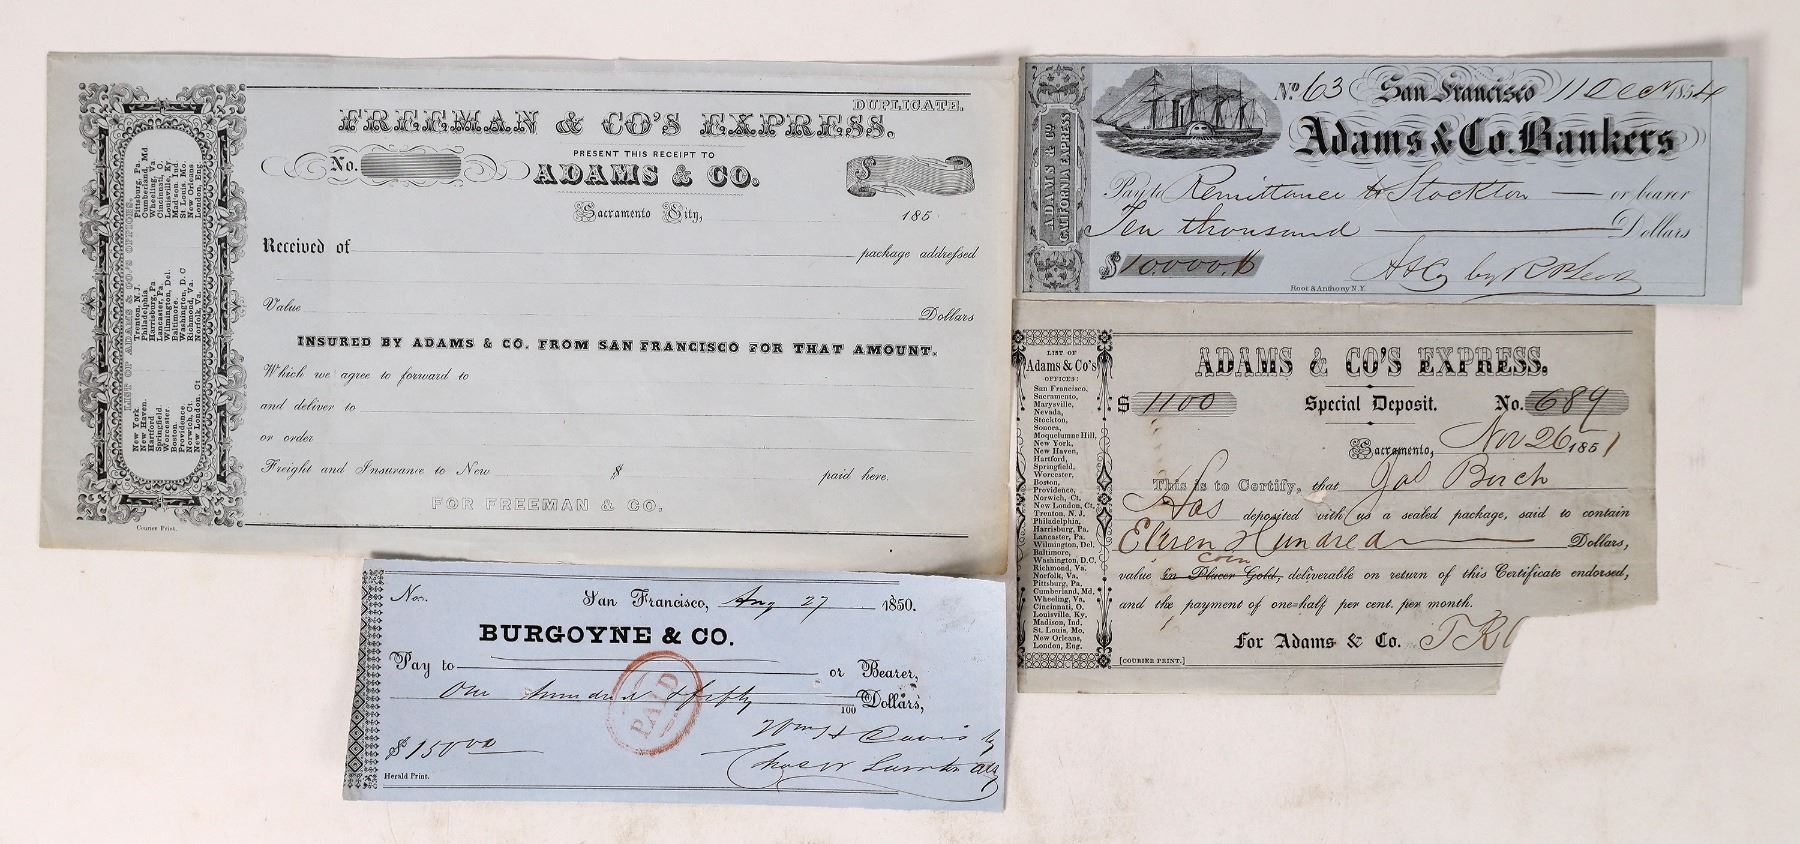 DUPLICATE.
FREEMAN & CO'S EXPRESS.
PRESENT THIS RECEIPT TO
No.
ADAMS & CO.
$
Sacramento City, 185
Received of package addressed
Value Dollars
INSURED BY ADAMS & CO. FROM SAN FRANCISCO FOR THAT AMOUNT.
Which we agree to forward to
and deliver to
or order
Freight and Insurance to New $ paid here.
FOR FREEMAN & CO.
Courier Print.
LIST OF ADAMS & CO'S OFFICES.
New York.
New Haven.
Hartford
Springfield.
Worcester.
Boston.
Providence.
Norwich, Ct.
New London. Ct
Trenton, N. J.
Philadelphia
Harrisburg, Pa
Lancaster, Pa
Wilmington, Del.
Baltimore.
Washington, D. C
Richmond, Va.
Norfolk, Va.
Pittsburg, Pa.
Cumberland, Md
Wheeling, Va
Cincinnati, O.
Louisville, Ky
Madison, Ind.
St Louis, Mo.
New Orleans
London, Eng.
ADAMS & CO.
CALIFORNIA EXPRESS
No. 63 San Francisco 11 Decr 1854
Adams & Co. Bankers
Pay to Remittance to Stockton or bearer
Ten thousand Dollars
$10000.
A & Co by
Root & Anthony N.Y.
LIST OF
Adams & Co's
OFFICES:
San Francisco,
Sacramento,
Marysville,
Nevada,
Stockton,
Sonora,
Moquelumne Hill,
New York,
New Haven,
Hartford,
Springfield,
Worcester,
Boston,
Providence,
Norwich, Ct.
New London, Ct.
Trenton, N. J.
Philadelphia,
Harrisburg, Pa.
Lancaster, Pa.
Wilmington, Del.
Baltimore,
Washington, D.C.
Richmond, Va.
Norfolk, Va.
Pittsburg, Pa.
Cumberland, Md.
Wheeling, Va.
Cincinnati, O.
Louisville, Ky.
Madison, Ind.
St. Louis, Mo,
New Orleans,
London, Eng.
ADAMS & CO'S EXPRESS.
$ 1100 Special Deposit. No. 689
Sacramento, Nov 26 1851
This is to Certify, that Jas Birch
Has deposited with us a sealed package, said to contain
Eleven Hundred Dollars,
Coin
value in Placer Gold, deliverable on return of this Certificate endorsed,
and the payment of one=half per cent. per month.
For Adams & Co.
[COURIER PRINT.]
No. San Francisco, Aug 27 1850.
BURGOYNE & CO.
Pay to or Bearer,
One hundred & fifty 100 Dollars,
PAID
$ 150 00
Wm H Davis by
Herald Print.